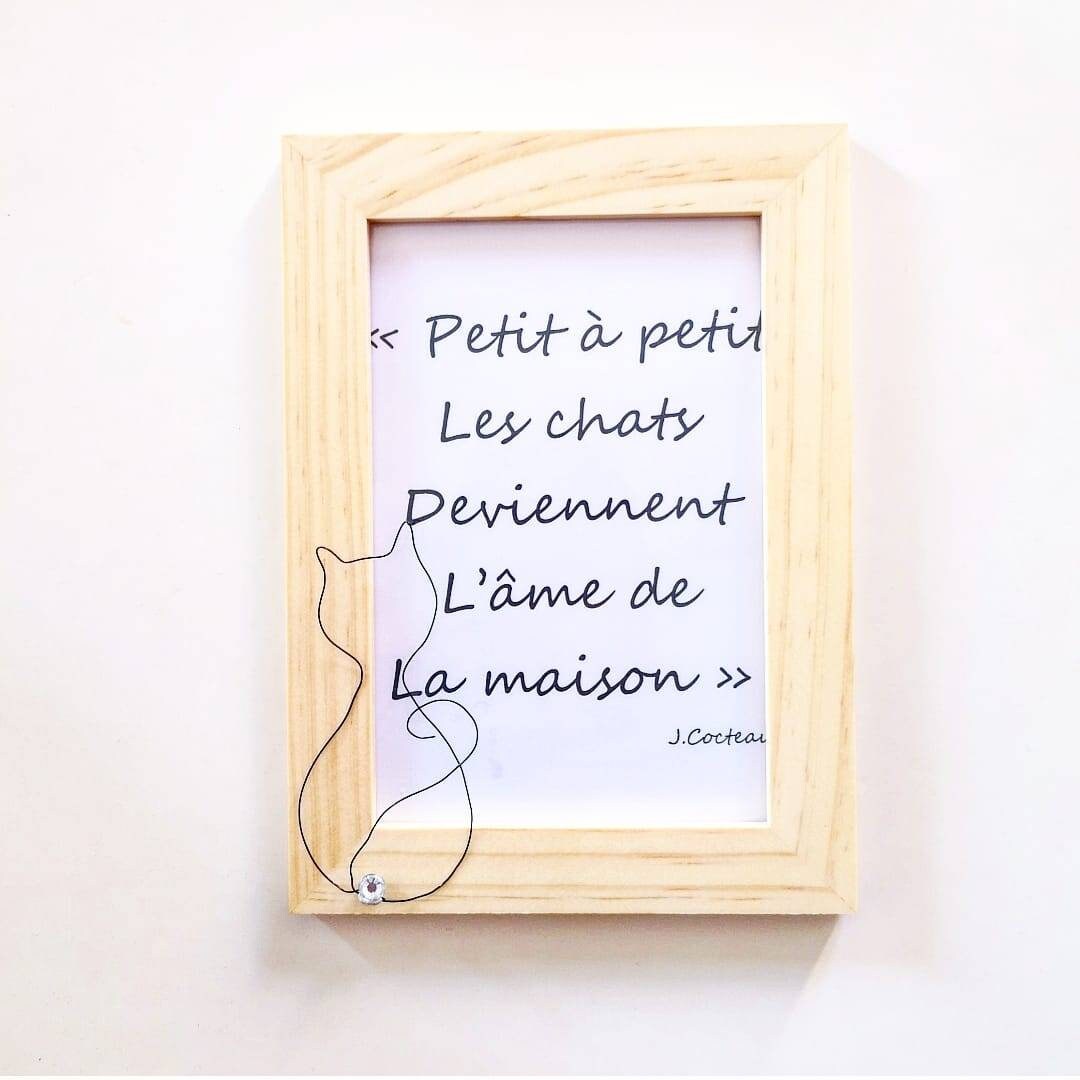 « Petit à petit
Les chats
Deviennent
L'âme de
La maison »
J.Cocteau